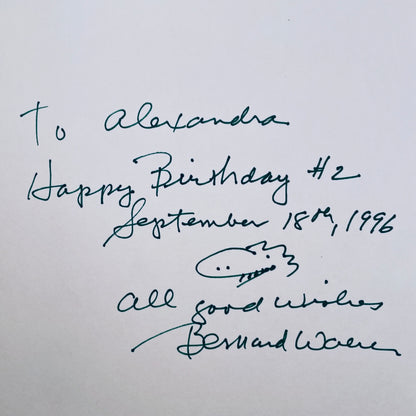 To Alexandra
Happy Birthday #2
September 18th, 1996
All good wishes
Bernard Waber